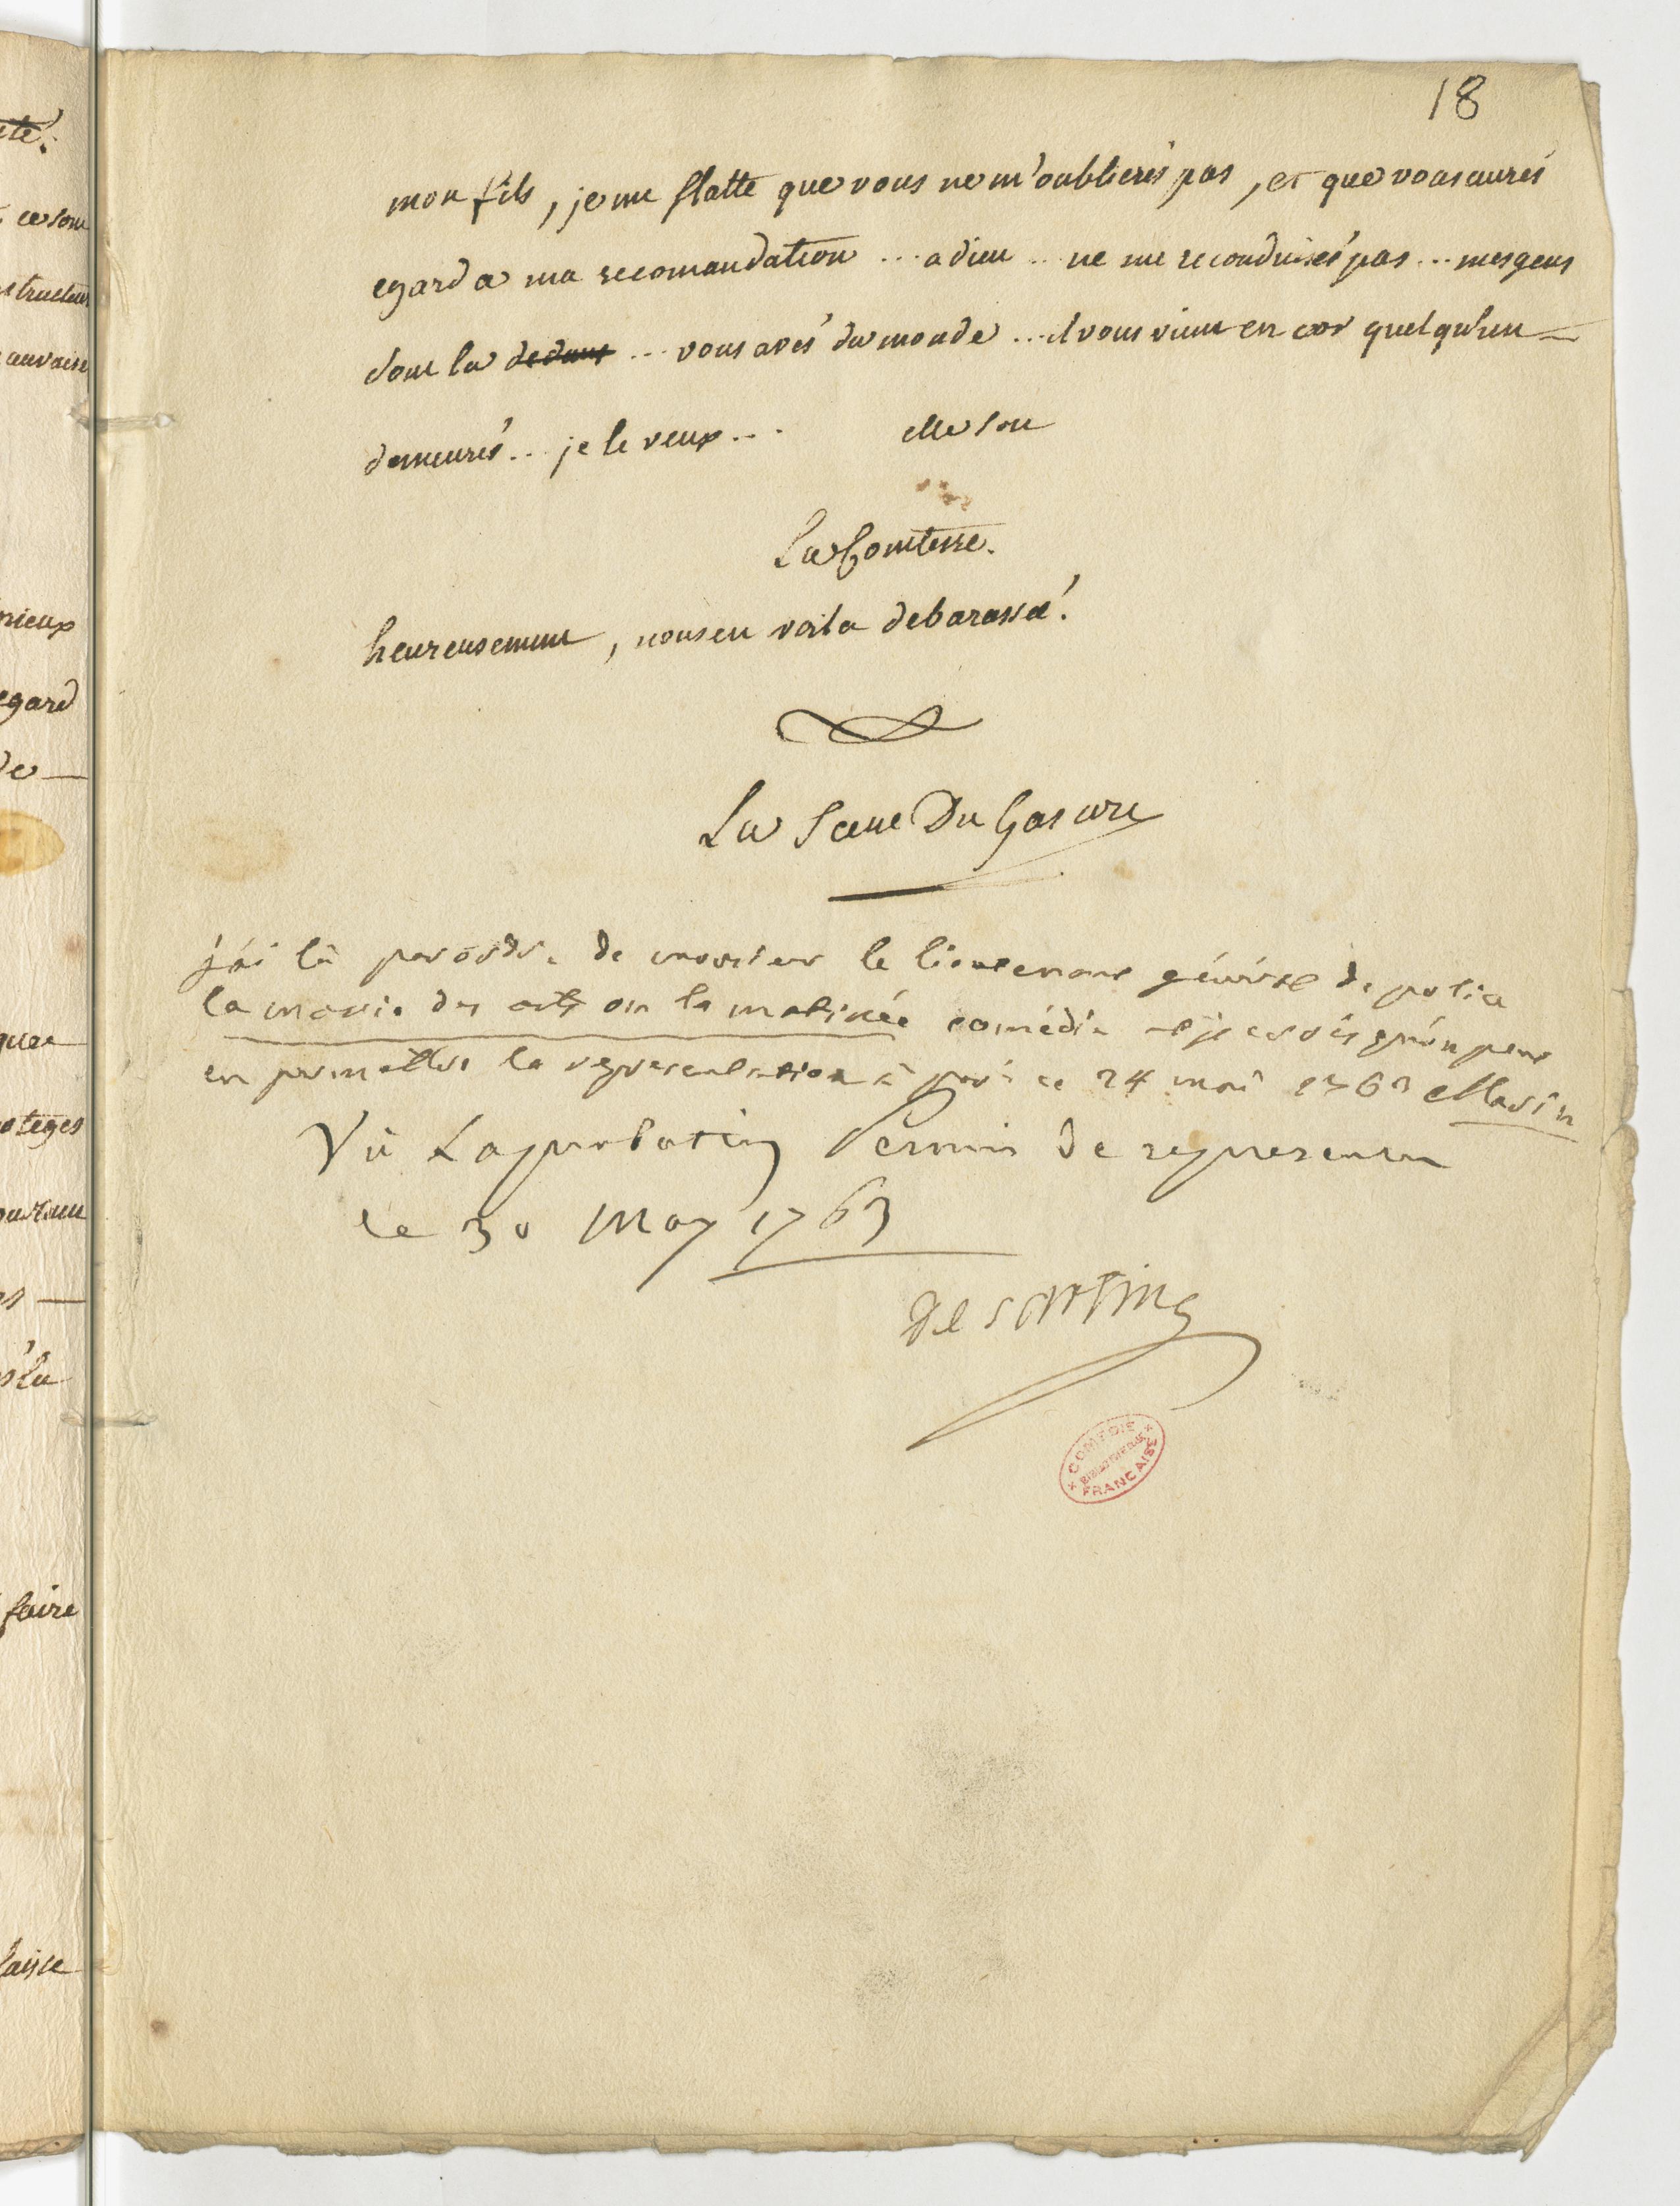 18
mon fils, je me flatte que vous ne m'oublierés pas, et que vous aurés
egard a ma recomandation ... a dieu ... ne me reconduisés pas ... mes gens
sont la dedans ... vous avés du monde ... il vous vient en cor quelqu'un
demeurés .. je le veux ...
elle sort
La Comtesse.
heureusement, nous en voila debarassé.
La Scene Du
j'ai lû par ordre de monsieur le lieutenant général de police
la manie des arts ou la matinée comédie et je crois qu'on peut
en permettre la representation à paris ce 24 mai 1763 Marin
Vû Laprobation Permis de representer
le 30 May 1763
De Sartine
COMÉDIE
BIBLIOTHEQUE
FRANÇAISE
ité.
ce sont
structeur
auvaise
mieux
egard
de
faire
laisse